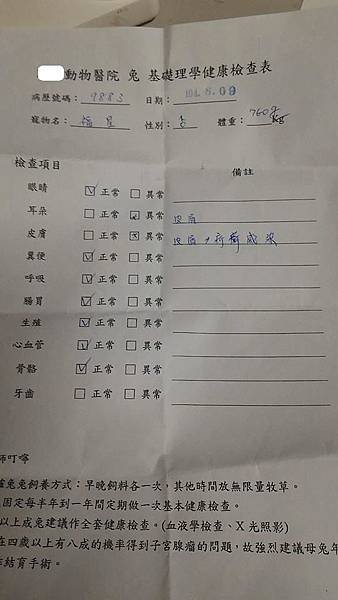 動物醫院 兔 基礎理學健康檢查表
病歷號碼： 9883 日期： 104.8.09
寵物名： 福星 性別： 體重： 760g kg
檢查項目 備註
眼睛 ☑ 正常 □ 異常
耳朵 □ 正常 ☑ 異常 皮屑
皮膚 □ 正常 ☑ 異常 皮屑，疥癬感染
糞便 ☑ 正常 □ 異常
呼吸 ☑ 正常 □ 異常
腸胃 ☑ 正常 □ 異常
生殖 ☑ 正常 □ 異常
心血管 ☑ 正常 □ 異常
骨骼 ☑ 正常 □ 異常
牙齒 □ 正常 □ 異常
師叮嚀
兔兔飼養方式：早晚飼料各一次，其他時間放無限量牧草。
固定每半年到一年間定期做一次基本健康檢查。
以上成兔建議作全套健康檢查。(血液學檢查、X 光照影)
在四歲以上有八成的機率得到子宮腺瘤的問題，故強烈建議母兔年
結育手術。